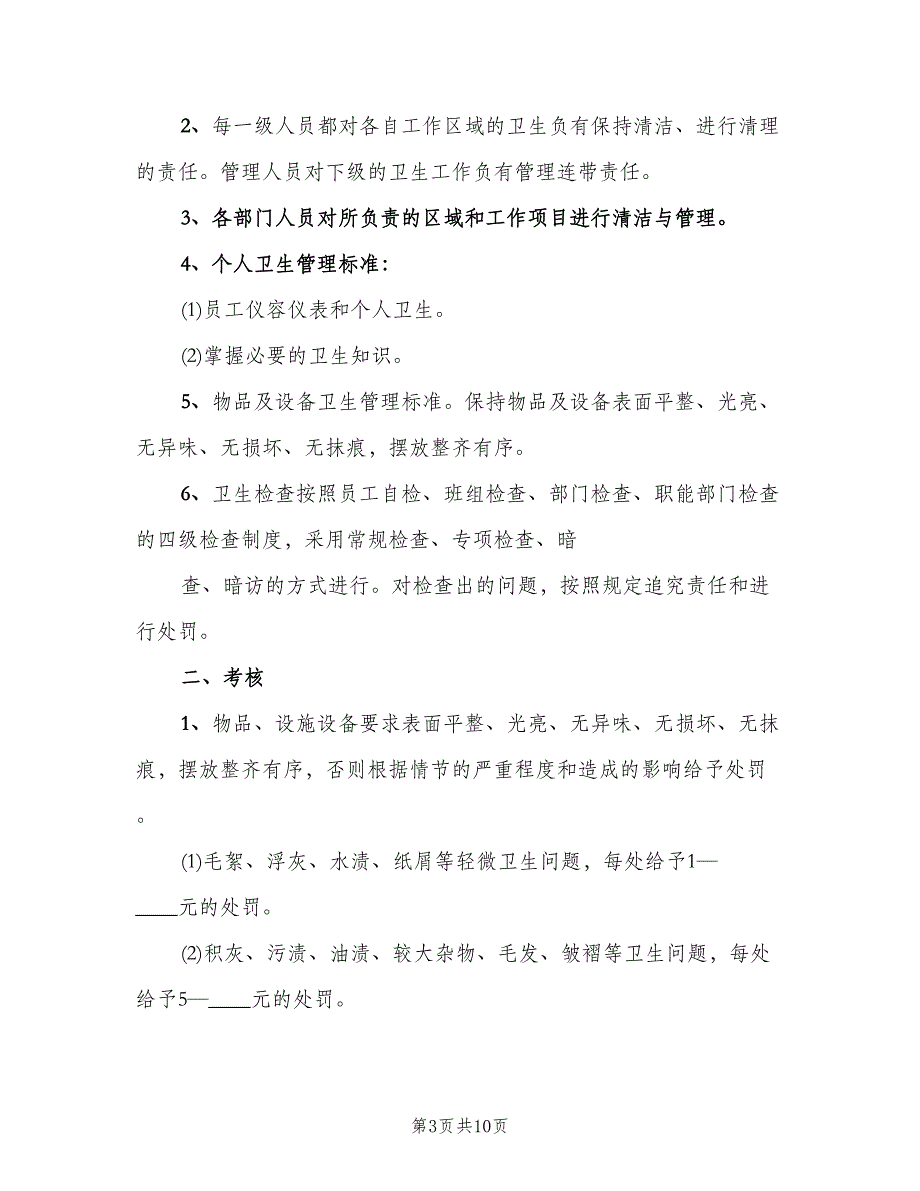 2、每一级人员都对各自工作区域的卫生负有保持清洁、进行清理
的责任。管理人员对下级的卫生工作负有管理连带责任。
3、各部门人员对所负责的区域和工作项目进行清洁与管理。
4、个人卫生管理标准：
⑴员工仪容仪表和个人卫生。
⑵掌握必要的卫生知识。
5、物品及设备卫生管理标准。保持物品及设备表面平整、光亮、
无异味、无损坏、无抹痕，摆放整齐有序。
6、卫生检查按照员工自检、班组检查、部门检查、职能部门检查
的四级检查制度，采用常规检查、专项检查、暗
查、暗访的方式进行。对检查出的问题，按照规定追究责任和进
行处罚。
二、考核
1、物品、设施设备要求表面平整、光亮、无异味、无损坏、无抹
痕，摆放整齐有序，否则根据情节的严重程度和造成的影响给予处罚
。
⑴毛絮、浮灰、水渍、纸屑等轻微卫生问题，每处给予1—
____元的处罚。
⑵积灰、污渍、油渍、较大杂物、毛发、皱褶等卫生问题，每处
给予5—____元的处罚。
第3页共10页